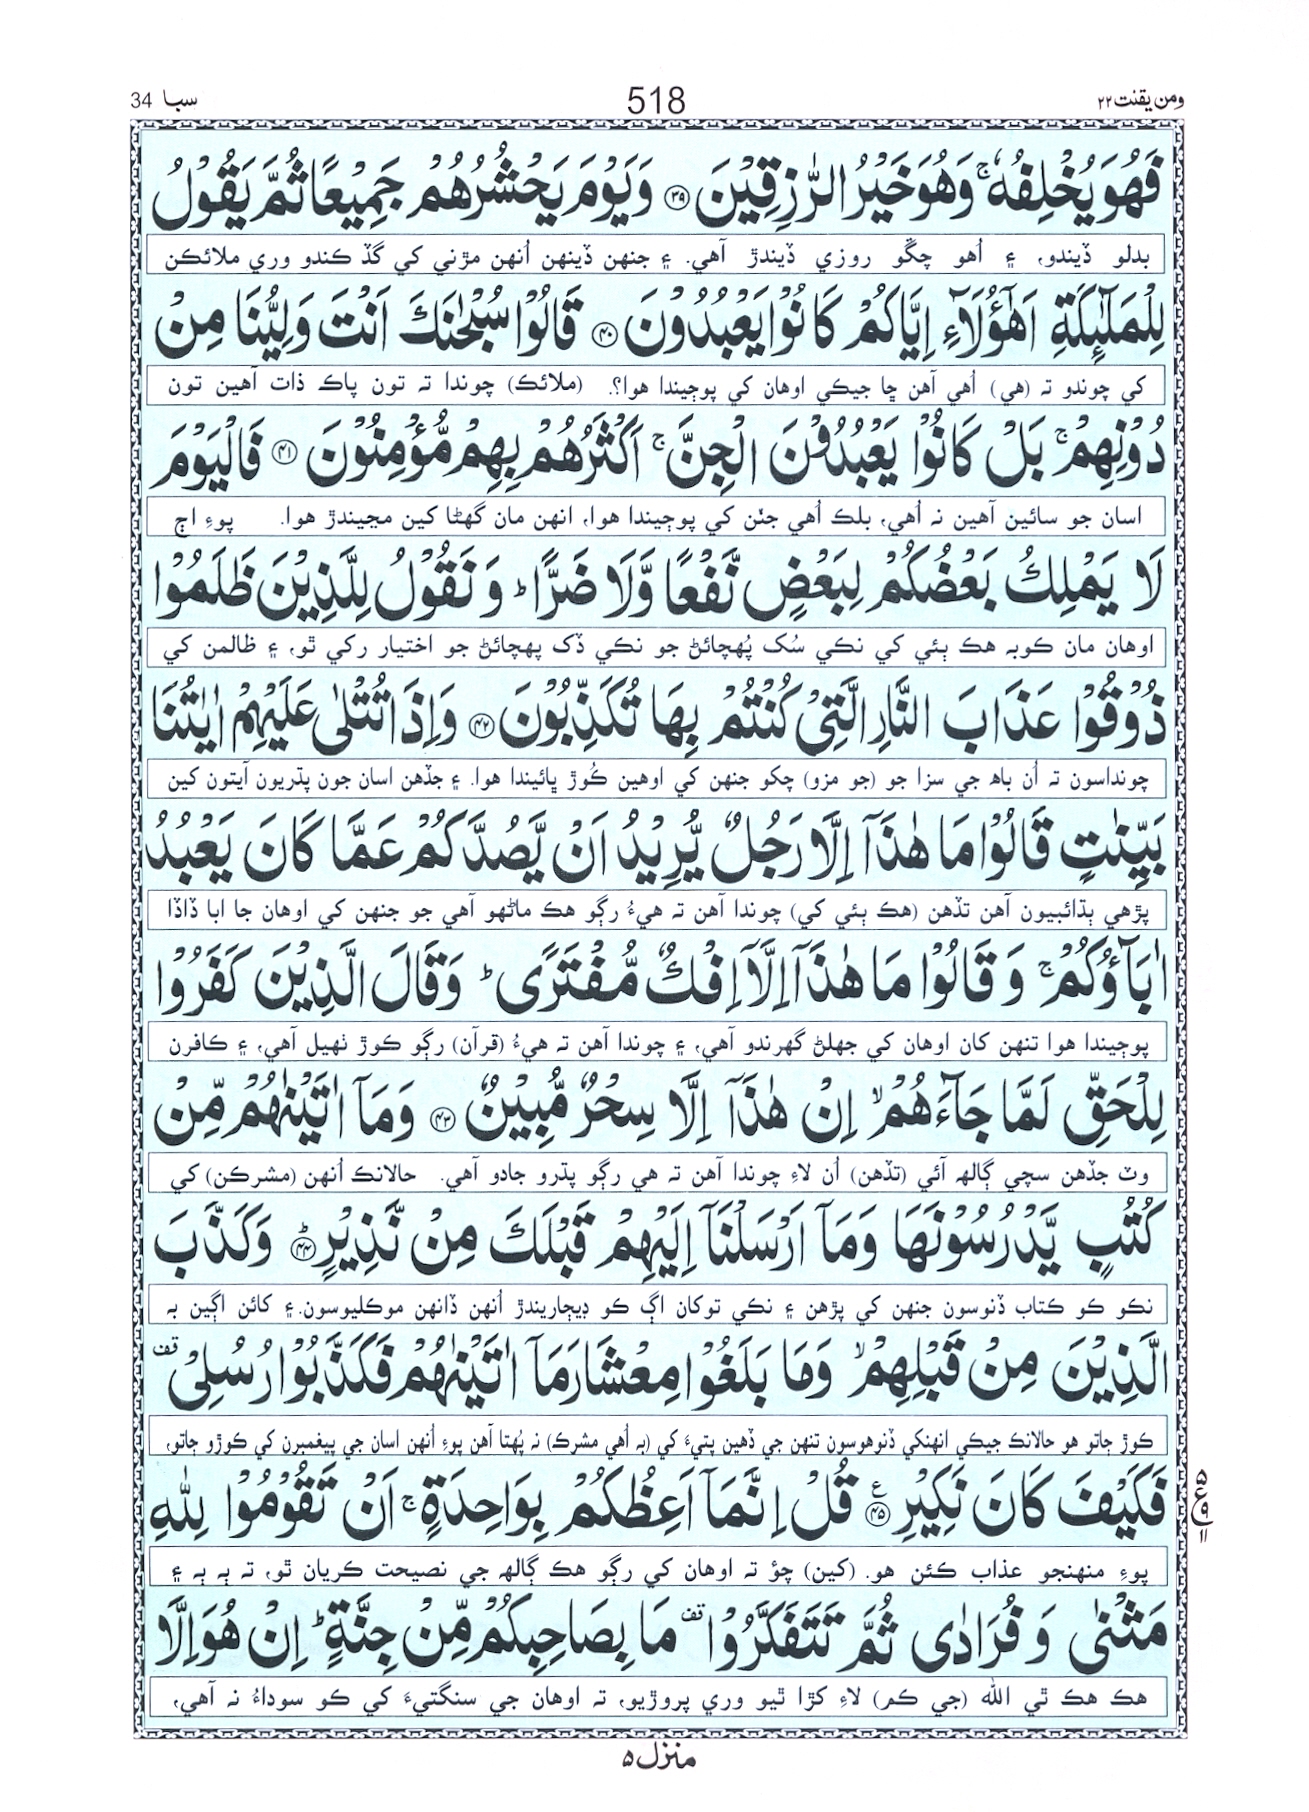 ومن يقنت ٢٢
518
سبا 34
فَهُوَ يُخْلِفُهٗ ۚ وَهُوَ خَيْرُ الرّٰزِقِيْنَ ﴿٣٩﴾ وَيَوْمَ يَحْشُرُهُمْ جَمِيْعًا ثُمَّ يَقُوْلُ
بدلو ڏيندو، ۽ اُهو چڱو روزي ڏيندڙ آهي. ۽ جنهن ڏينهن اُنهن مڙني کي گڏ ڪندو وري ملائڪن
لِلْمَلٰٓئِكَةِ اَهٰٓؤُلَآءِ اِيَّاكُمْ كَانُوْا يَعْبُدُوْنَ ﴿٤٠﴾ قَالُوْا سُبْحٰنَكَ اَنْتَ وَلِيُّنَا مِنْ
کي چوندو تہ (هي) اُهي آهن ڇا جيڪي اوهان کي پوڄيندا هوا؟. (ملائڪ) چوندا تہ تون پاڪ ذات آهين تون
دُوْنِهِمْ ۚ بَلْ كَانُوْا يَعْبُدُوْنَ الْجِنَّ ۚ اَكْثَرُهُمْ بِهِمْ مُّؤْمِنُوْنَ ﴿٤١﴾ فَالْيَوْمَ
اسان جو سائين آهين نہ اُهي، بلڪ اُهي جنّن کي پوڄيندا هوا، انهن مان گهڻا کين مڃيندڙ هوا. پوءِ اڄ
لَا يَمْلِكُ بَعْضُكُمْ لِبَعْضٍ نَّفْعًا وَّلَا ضَرًّا ؕ وَ نَقُوْلُ لِلَّذِيْنَ ظَلَمُوْا
اوهان مان ڪوبہ هڪ ٻئي کي نڪي سُک پُهچائڻ جو نڪي ڏک پهچائڻ جو اختيار رکي ٿو، ۽ ظالمن کي
ذُوْقُوْا عَذَابَ النَّارِ الَّتِيْ كُنْتُمْ بِهَا تُكَذِّبُوْنَ ﴿٤٢﴾ وَاِذَا تُتْلٰى عَلَيْهِمْ اٰيٰتُنَا
چونداسون تہ اُن باہ جي سزا جو (جو مزو) چکو جنهن کي اوهين ڪُوڙ ڀائيندا هوا. ۽ جڏهن اسان جون پڌريون آيتون کين
بَيِّنٰتٍ قَالُوْا مَا هٰذَآ اِلَّا رَجُلٌ يُّرِيْدُ اَنْ يَّصُدَّكُمْ عَمَّا كَانَ يَعْبُدُ
پڙهي ٻڌائبيون آهن تڏهن (هڪ ٻئي کي) چوندا آهن تہ هيءُ رڳو هڪ ماڻهو آهي جو جنهن کي اوهان جا ابا ڏاڏا
اٰبَآؤُكُمْ ۚ وَ قَالُوْا مَا هٰذَآ اِلَّآ اِفْكٌ مُّفْتَرًى ؕ وَقَالَ الَّذِيْنَ كَفَرُوْا
پوڄيندا هوا تنهن کان اوهان کي جهلڻ گهرندو آهي، ۽ چوندا آهن تہ هيءُ (قرآن) رڳو ڪوڙ ٺهيل آهي، ۽ ڪافرن
لِلْحَقِّ لَمَّا جَآءَهُمْ ۙ اِنْ هٰذَآ اِلَّا سِحْرٌ مُّبِيْنٌ ﴿٤٣﴾ وَمَآ اٰتَيْنٰهُمْ مِّنْ
وٽ جڏهن سچي ڳالهہ آئي (تڏهن) اُن لاءِ چوندا آهن تہ هي رڳو پڌرو جادو آهي. حالانڪ اُنهن (مشرڪن) کي
كُتُبٍ يَّدْرُسُوْنَهَا وَمَآ اَرْسَلْنَآ اِلَيْهِمْ قَبْلَكَ مِنْ نَّذِيْرٍ ﴿٤٤﴾ؕ وَكَذَّبَ
نڪو ڪو ڪتاب ڏنوسون جنهن کي پڙهن ۽ نڪي توکان اڳ ڪو ڊيڄاريندڙ اُنهن ڏانهن موڪليوسون. ۽ کائن اڳين بہ
الَّذِيْنَ مِنْ قَبْلِهِمْ ۙ وَمَا بَلَغُوْا مِعْشَارَ مَآ اٰتَيْنٰهُمْ فَكَذَّبُوْا رُسُلِيْ قف
ڪوڙ ڄاتو هو حالانڪ جيڪي انهنکي ڏنوهوسون تنهن جي ڏهين پتيءَ کي (بہ اُهي مشرڪ) نہ پُهتا آهن پوءِ اُنهن اسان جي پيغمبرن کي ڪوڙو ڄاتو،
فَكَيْفَ كَانَ نَكِيْرِ ﴿٤٥﴾ ع قُلْ اِنَّمَآ اَعِظُكُمْ بِوَاحِدَةٍ ۚ اَنْ تَقُوْمُوْا لِلّٰهِ
ع ٥ ٩ ١١
پوءِ منهنجو عذاب ڪئن هو. (کين) چؤ تہ اوهان کي رڳو هڪ ڳالهہ جي نصيحت ڪريان ٿو، تہ ٻہ ٻہ ۽
مَثْنٰى وَ فُرَادٰى ثُمَّ تَتَفَكَّرُوْا قف مَا بِصَاحِبِكُمْ مِّنْ جِنَّةٍ ؕ اِنْ هُوَ اِلَّا
هڪ هڪ ٿي الله (جي ڪم) لاءِ کڙا ٿيو وري پروڙيو، تہ اوهان جي سنگتيءَ کي ڪو سوداءُ نہ آهي،
منزل ٥